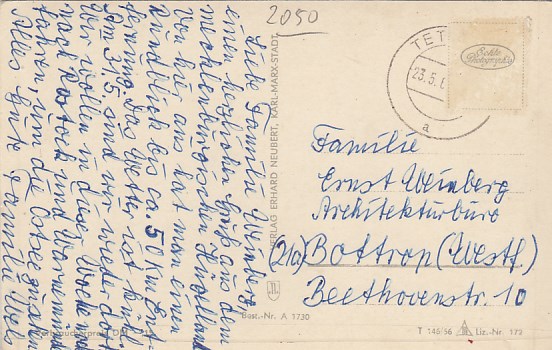 2050
Liebe Familie Weinberg
einen herzlichen Gruß aus dem
mecklenburgischen Hügelland
Von hier aus hat man einen
Rundblick bis ca. 50 km Ent-
fernung. Das Wetter ist kühl.
Am 31.5. sind wir wieder dort
Wir wollen in der Woche
nach Rostock und Warnemünde
fahren, um die Ostsee
Alles Gute Familie
VERLAG ERHARD NEUBERT, KARL-MARX-STADT
TET
23.5.6
a
Echte
Photographie
Familie
Ernst Weinberg
Architekturbüro
(21a) Bottrop (Westf.)
Beethovenstr. 10
Best.-Nr. A 1730
Verbraucherpreis DM
T 146/56
Liz.-Nr. 172